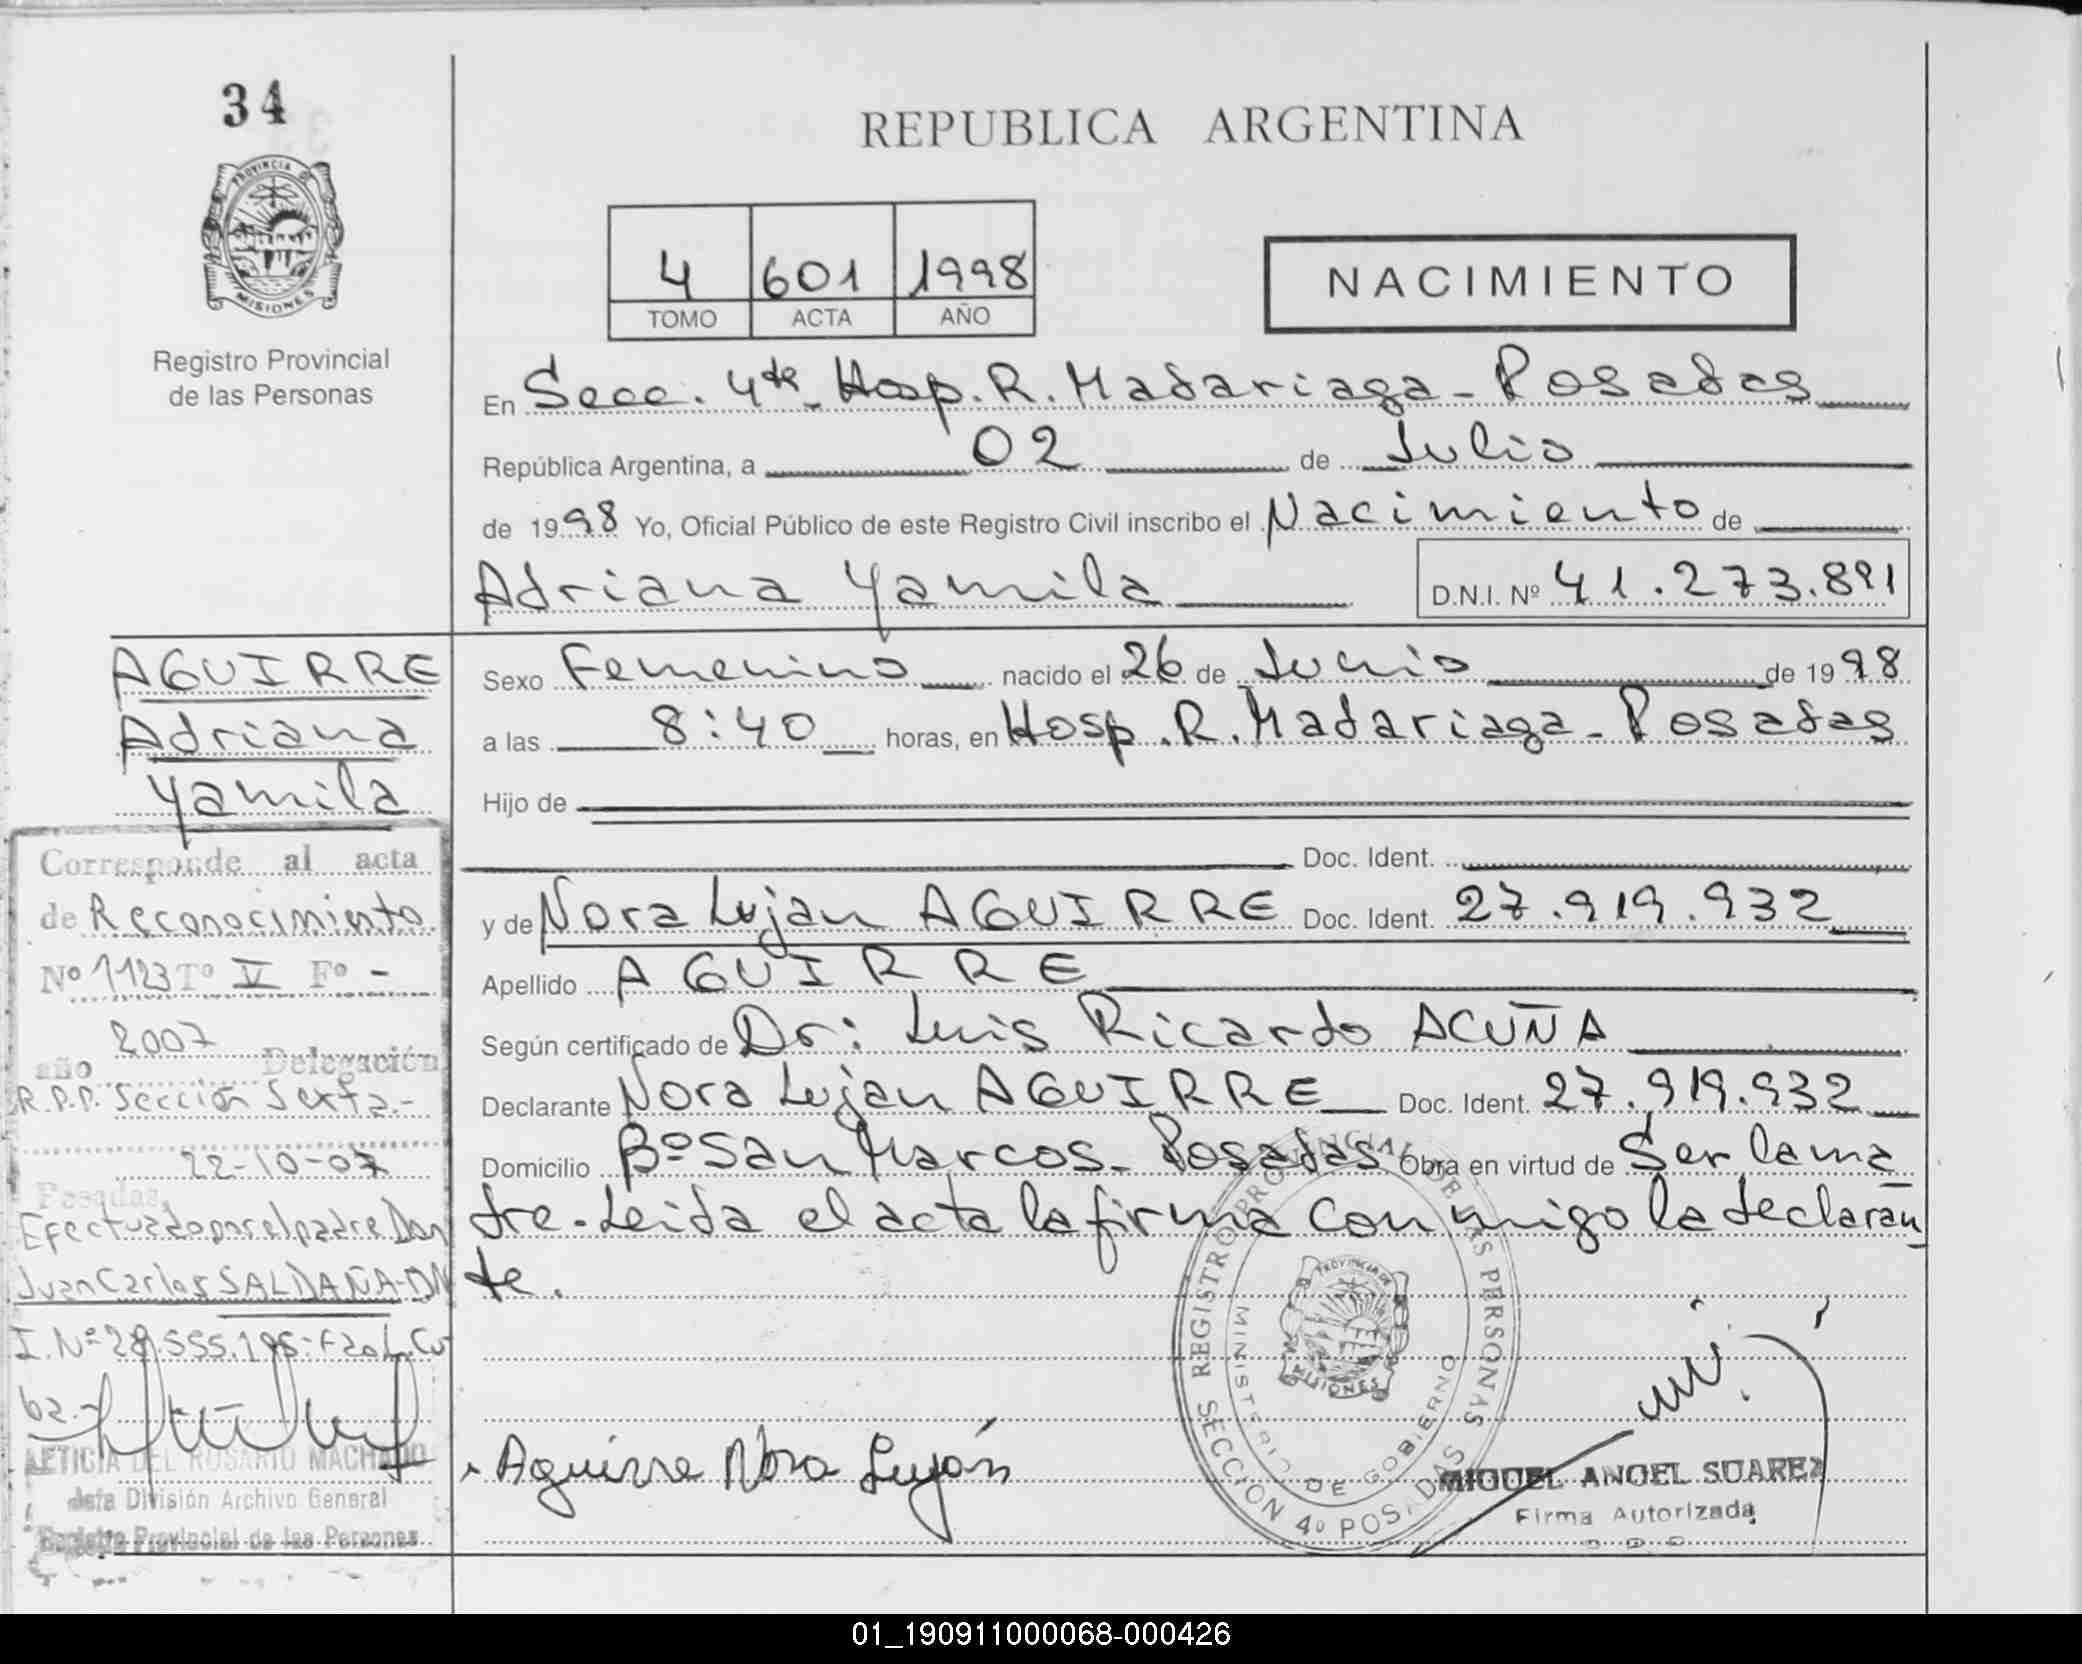 34
PROVINCIA DE
MISIONES
Registro Provincial
de las Personas
REPUBLICA ARGENTINA
4 601 1998
TOMO ACTA AÑO
NACIMIENTO
En Secc. 4ta_Hosp. R. Madariaga - Posadas
República Argentina, a 02 de Julio
de 1998 Yo, Oficial Público de este Registro Civil inscribo el Nacimiento de
Adriana Yamila
D.N.I. Nº 41.273.891
Sexo Femenino nacido el 26 de Junio de 1998
a las 8:40 horas, en Hosp. R. Madariaga - Posadas
Hijo de
Doc. Ident.
y de Nora Lujan AGUIRRE Doc. Ident. 27.919.932
Apellido AGUIRRE
Según certificado de Dr: Luis Ricardo ACUÑA
Declarante Nora Lujan AGUIRRE Doc. Ident. 27.919.932
Domicilio Bº San Marcos - Posadas Obra en virtud de Ser la ma
dre. Leida el acta la firma conmigo la declaran
te.
Aguirre Nora Luján
REGISTRO PROVINCIAL DE LAS PERSONAS
SECCION 4º POSADAS
MINISTERIO DE GOBIERNO
PROVINCIA DE
MISIONES
MIGUEL ANGEL SUAREZ
Firma Autorizada
AGUIRRE
Adriana
Yamila
Corresponde al acta
de Reconocimiento
Nº 1123 Tº V Fº -
año 2007 Delegación
R.P.P. Sección Sexta.-
22-10-07
Posadas,
Efectuado por el padre Don
Juan Carlos SALDAÑA-DN
I. Nº 28.555.195-
LETICIA DEL ROSARIO MACHADO
Jefa División Archivo General
Registro Provincial de las Personas
01_190911000068-000426